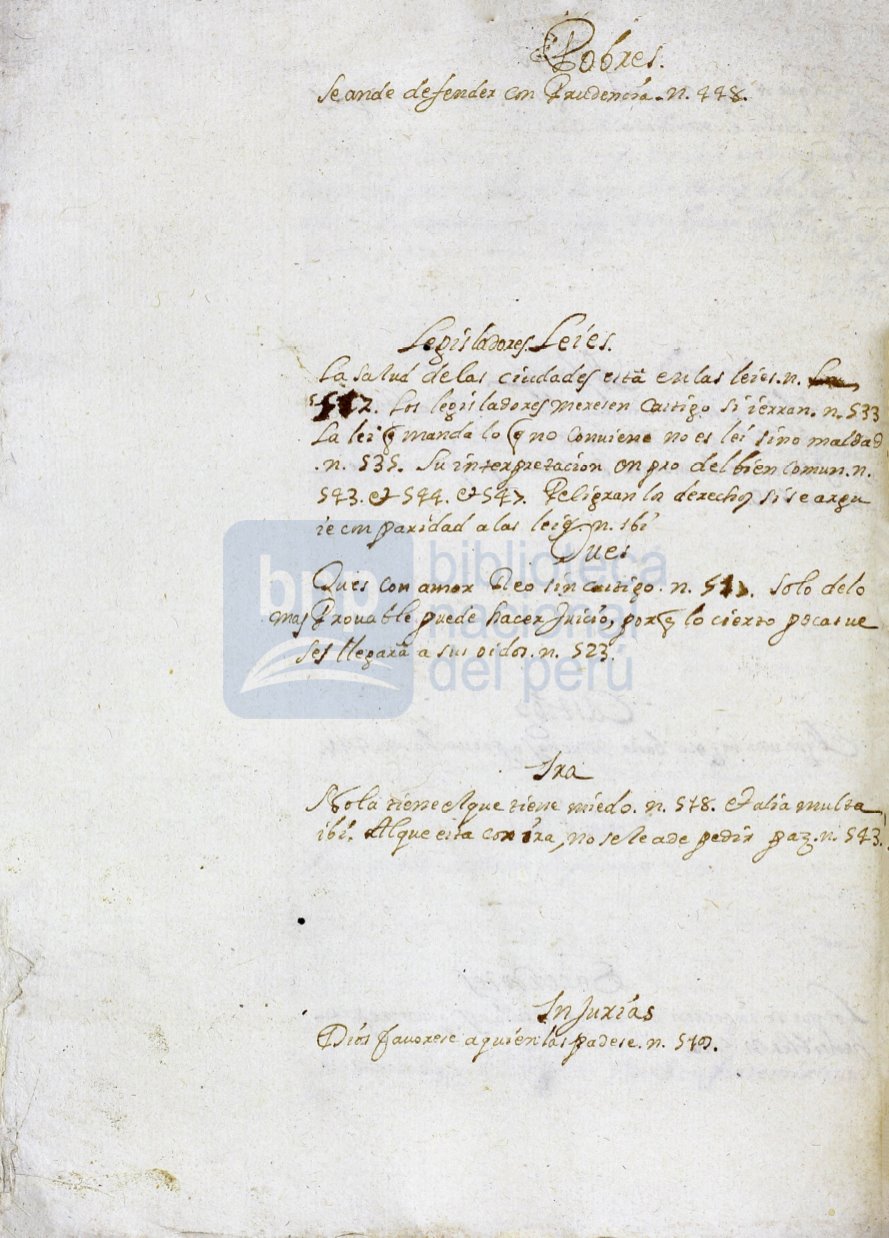 Pobres.
Se ande defender con Prudencia. n. 448.
Legisladores. Leies.
La salud de las ciudades està en las leies. n.
512. Los legisladores meresen castigo si ierran. n. 533
La lei q manda lo q no conviene no es lei sino maldad
.n. 535. Su interpretacion en pro del bien comun. n.
543. et 544. et 547. Peligran los derechos si se argu
ie con paridad a las leies n. ibi
Jues
Jues con amor Reo sin castigo. n. Solo de lo
mas Provable puede hacer Juicio, porq lo cierto pocas ve
ses llegarà a sus oidos. n. 523.
Ira
No la tiene el que tiene miedo. n. 578. et alia multa
ibi. Al que esta con ira, no se le a de pedir paz. n. 543.
InJurias
Dios favorese a quien las padese. n.
bnp biblioteca
nacional
del perú